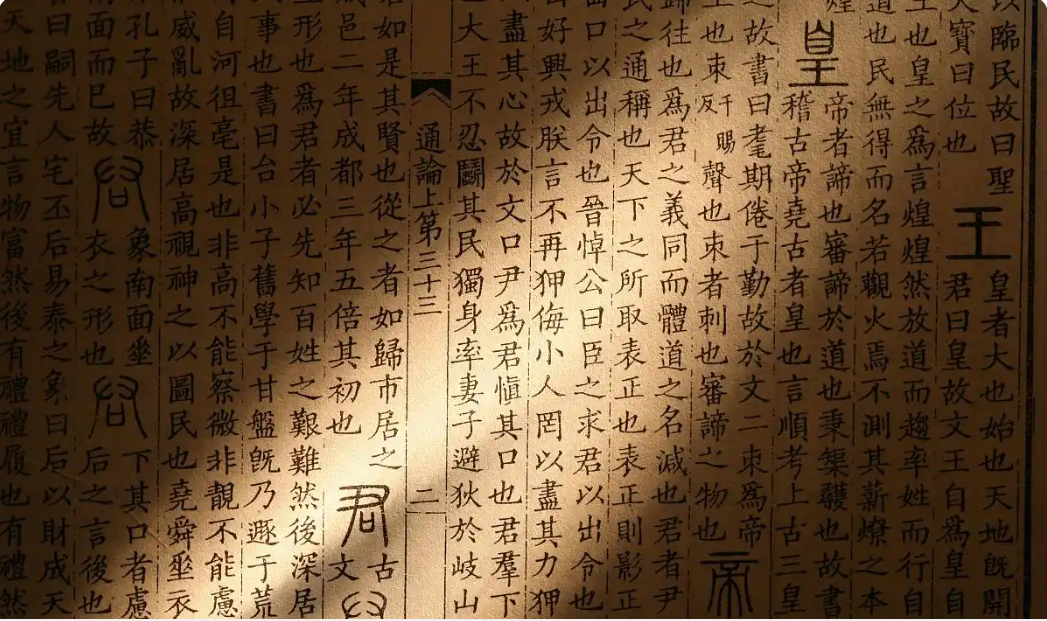 以臨民故曰聖王皇者大也始也天地旣開
大寶曰位也君曰皇故文王自爲皇自
王也皇之爲言煌煌然放道而趨率姓而行自
道也民無得而名若觀火焉不測其薪燎之本
煌皇帝者諦也審諦於道也秉榘彠也故書
稽古帝堯古者皇也言順考上古三皇
之故書曰耄期倦于勤故於文二朿爲帝
王也朿千賜反聲也朿者刺也審諦之物也帝
歸往也爲君之義同而體道之名減也君者尹
民之通稱也天下之所取表正也表正則影正
出口以出令也晉悼公曰臣之求君以出令也
好興戎朕言不再狎侮小人罔以盡其力狎
盡其心故於文口尹爲君愼其口也君羣下
大王不忍鬭其民獨身率妻子避狄於岐山
通論上第三十三 二
如是其賢也從之者如歸市居之君古
成邑二年成都三年五倍其初也文
形也爲君者必先知百姓之艱難然後深居
事也書曰台小子舊學于甘盤旣乃遯于荒
自河徂亳是也非高不能察微非靚不能慮
威亂故深居高視神之以圖民也堯舜垂衣
孔子曰恭象南面坐下其口者慮
南面而已故衣之形也后之言後也
曰嗣先人宅丕后易泰之象曰后以財成天
天地之宜言物富然後有禮禮履也有禮然